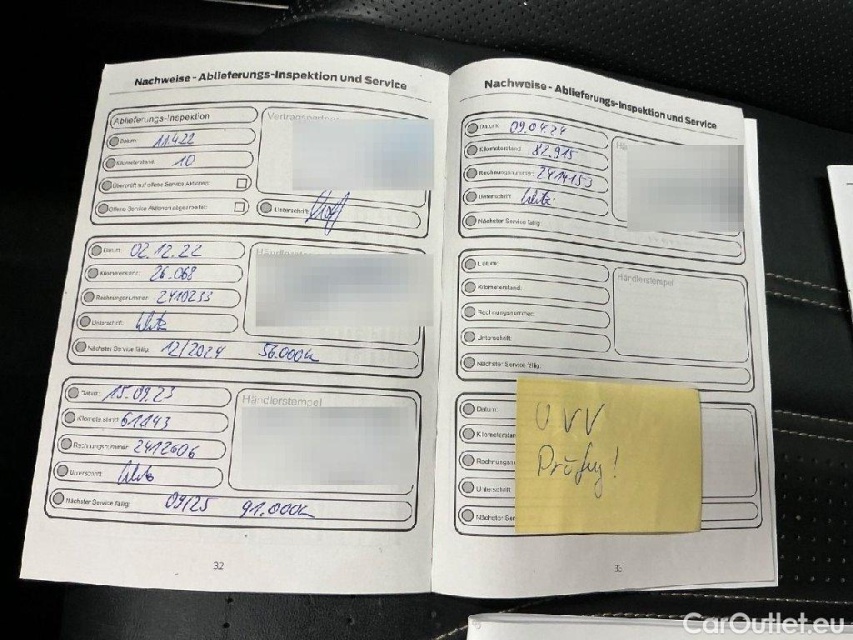 Nachweise - Ablieferungs-Inspektion und Service
Ablieferungs-Inspektion
Datum: 11.4.22
Kilometerstand: 10
Überprüft auf offene Service Aktionen:
Offene Service Aktionen abgearbeitet:
Vertragspartner
Unterschrift:
Datum: 02.12.22
Kilometerstand: 26.068
Rechnungsnummer: 2410233
Unterschrift:
Nächster Service fällig: 12/2024 56.000k
Datum: 15.09.23
Kilometerstand: 61143
Rechnungsnummer: 2412606
Unterschrift:
Händlerstempel
Nächster Service fällig: 09/25 91.000k
32
Nachweise - Ablieferungs-Inspektion und Service
Datum: 09.04.24
Kilometerstand: 82.915
Rechnungsnummer: 2414153
Unterschrift:
Nächster Service fällig:
Datum:
Kilometerstand:
Rechnungsnummer:
Unterschrift:
Händlerstempel
Nächster Service fällig:
Datum:
Kilometerstan
Rechnungsn
Unterschrift
Nächster Ser
UVV
Prüfung!
33
CarOutlet.eu